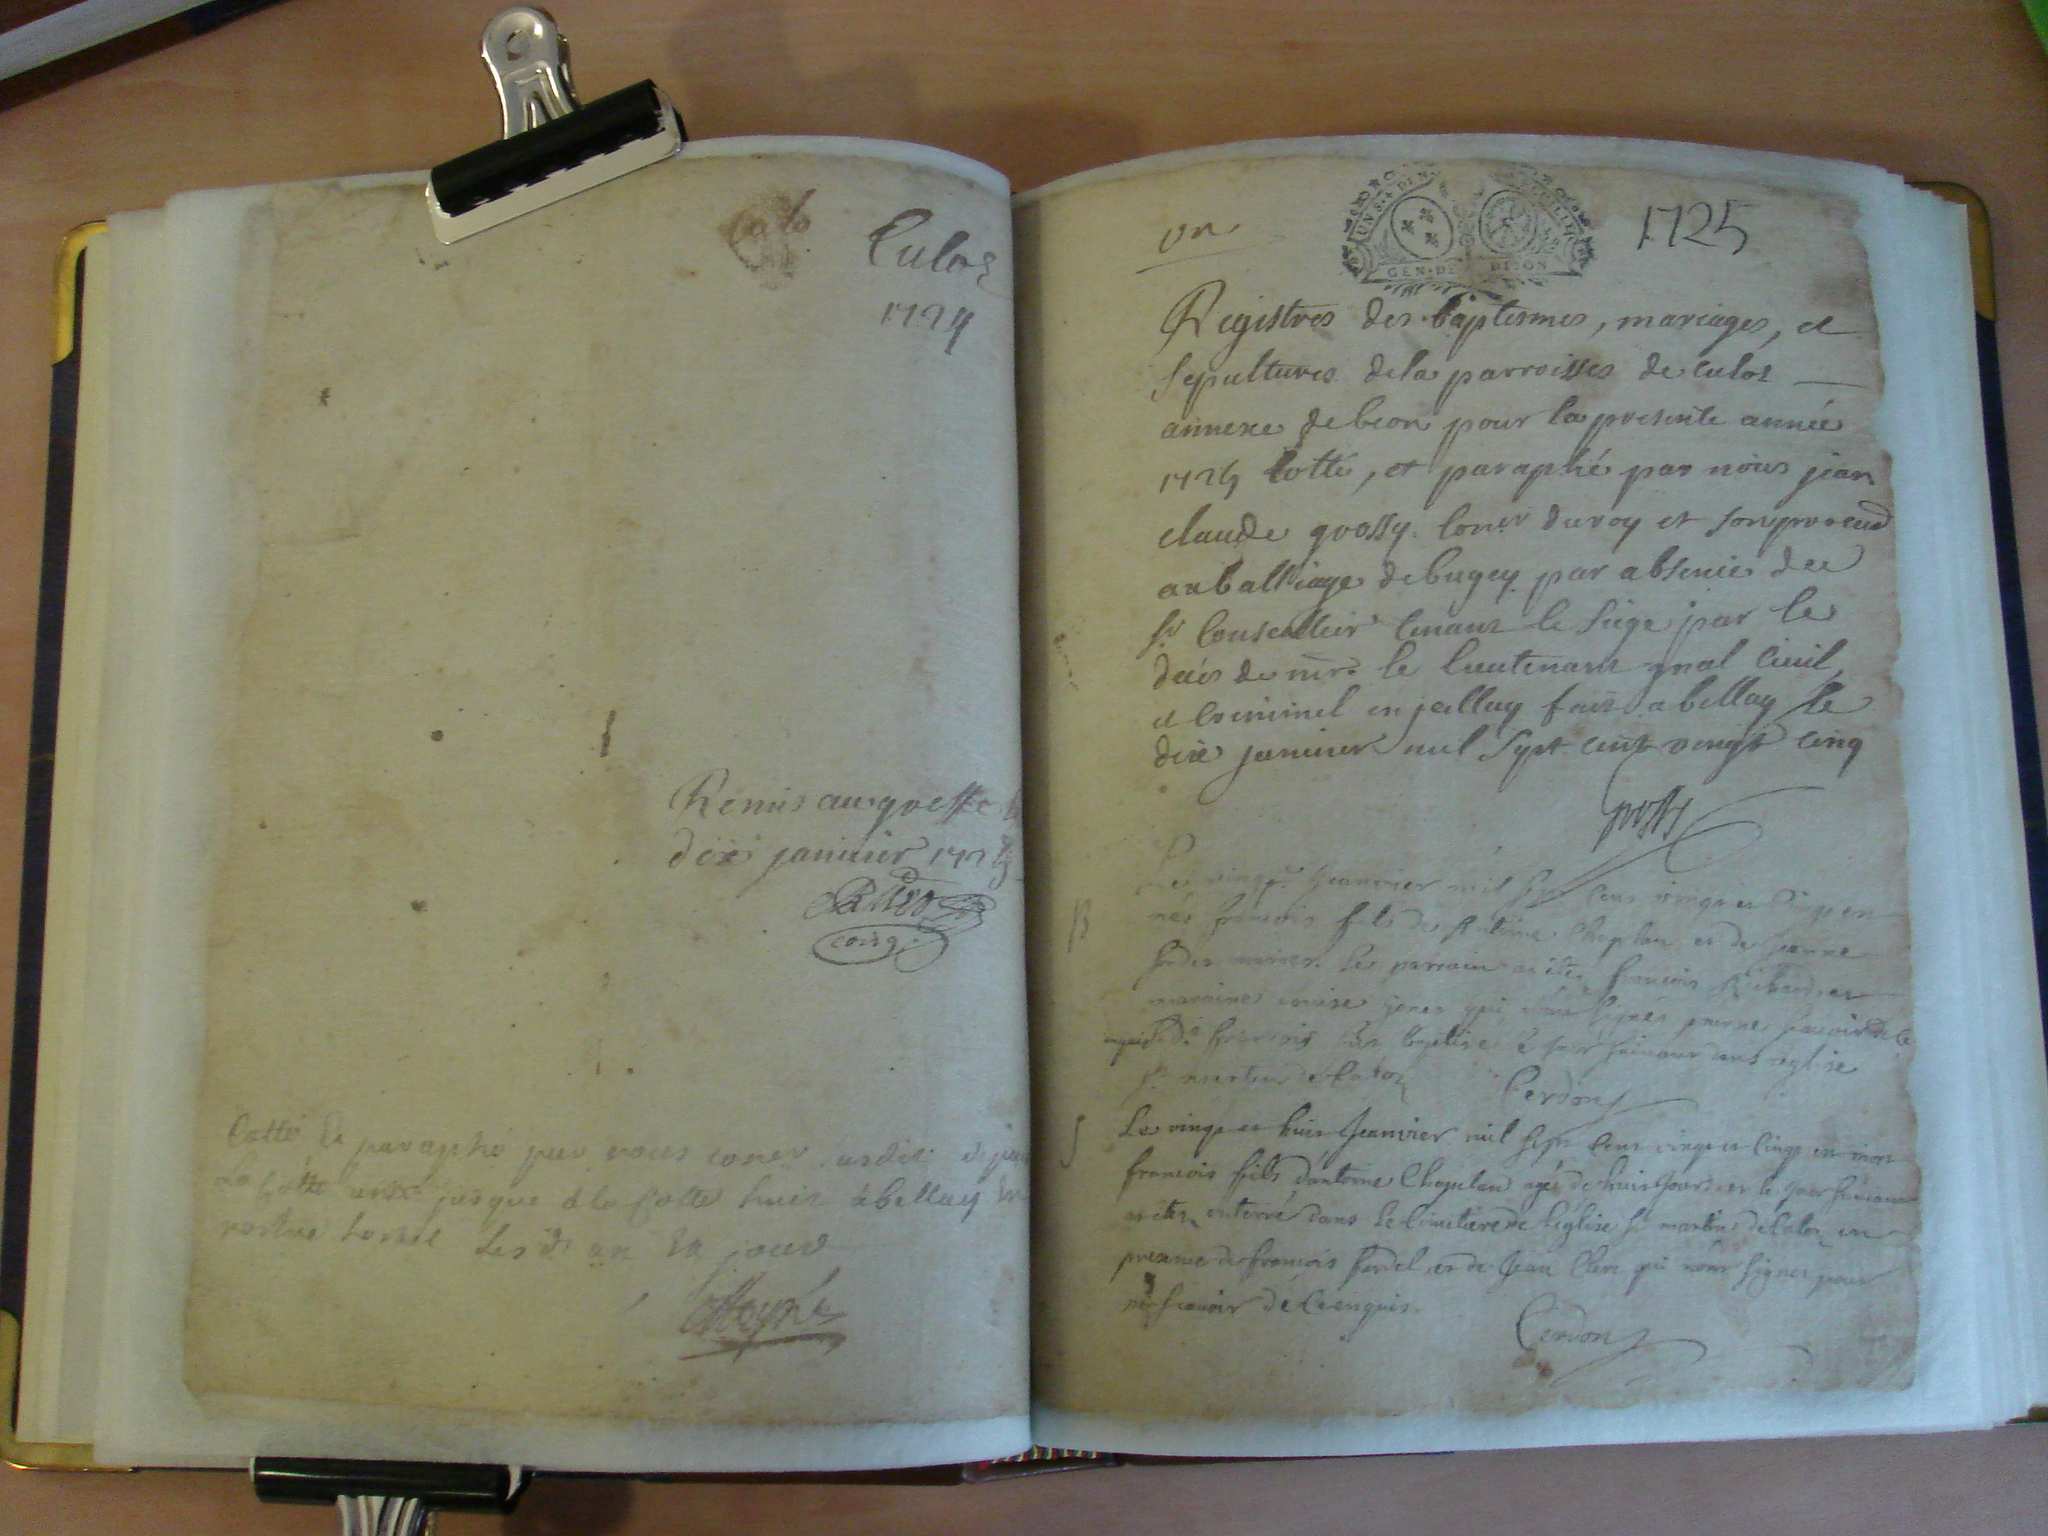 Culoz
1724
Remis au greffe le
dix janvier 172
Cotté & paraphé par nous
La Cotte une jusque à la Cotte huit à Bellay
nostre hostel les d. an & jour
un
GEN·DE DIJON
1725
Registres des baptesmes, mariages, et
sepultures de la parroisses de culos
annexe de beon pour la presente année
1725 Cotté, et paraphé par nous jean
claude grossy. Coner du roy et son procure
au balliage de bugey par absence de
Sr Conseiller tenant le siege par le
deces de mr. le lieutenant gnal Civil,
et Criminel en jcelluy fait a bellay le
dix janvier mil sept cent vingt cinq
grossy
B
Le vingt Jeanvier mil sept cens vingt et cinq est
né francois fils de Antoine Chapelan et de Jeanne
le parrain a été francois et
maraine Louise qui n'ont signés pour ne scavoir de ce
enquis francois été baptisé le jour suivant dans église
St martin de Culoz Cerdon
S
Le vingt et huit Jeanvier mil sept cens vingt et cinq est mort
francois fils d'antoine Chapelan agé de huit jours et le jour suivant
a été enterré dans le Cimitiere de l'église St martin de Culoz en
presence de francois fardel et de Jean Clerc qui n'ont signés pour
ne scavoir de ce enquis.
Cerdon